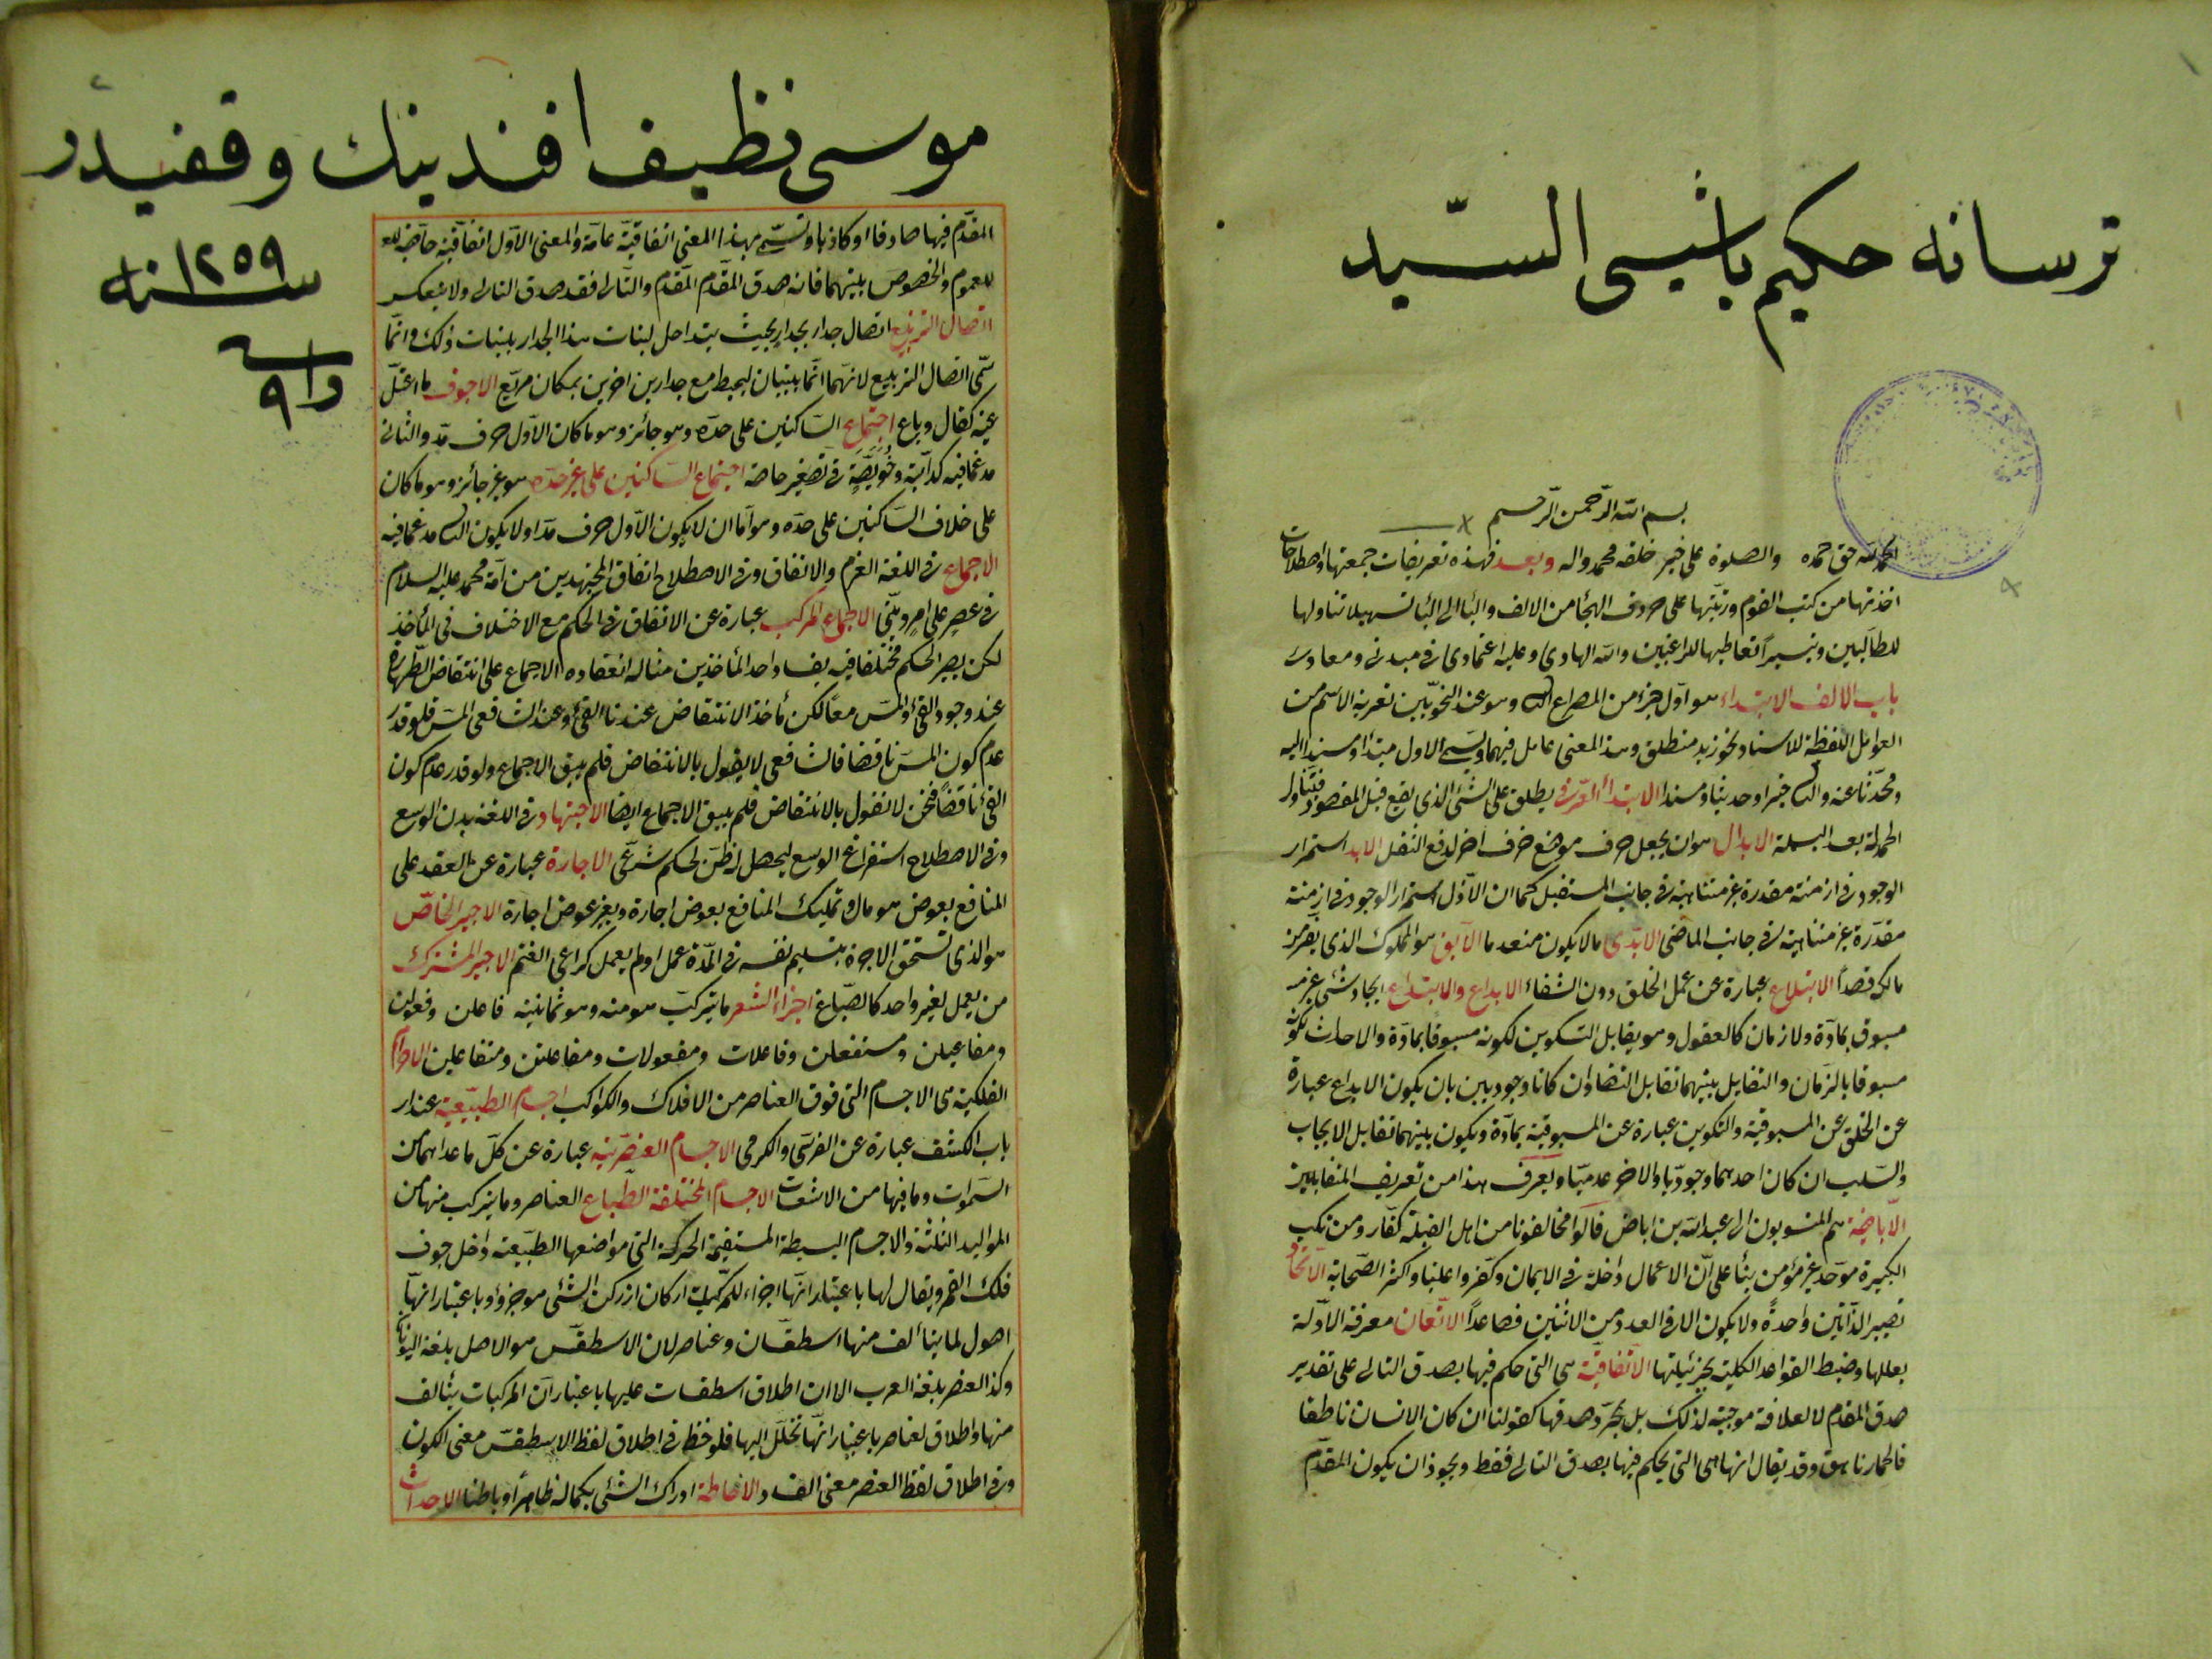 ترسانه حكيم باشيسى السّيد
بسم الله الرّحمن الرّحيم
الحمد لله حق حمده والصلوة على خير خلقه محمد واله وبعد فهذه تعريفات جمعتها واصطلاحات
اخذتها من كتب القوم ورتبتها على حروف الهجاء من الالف والباء الى الياء تسهيلا تناولها
للطالبين وتيسيرا تعاطيها للراغبين والله الهادى وعليه اعتمادى فى مبدئى ومعادى
باب الالف الابتداء هو اول جزء من المصراع الثانى وهو عند النحويين تعرية الاسم من
العوامل اللفظية للاسناد نحو زيد منطلق وهذا المعنى عامل فيهما ويسمى الاول مبتدأ ومسندا اليه
ومحدثا عنه والثانى خبرا وحديثا ومسندا الابتداء العرفى يطلق على الشئ الذى يقع قبل المقصود فيتناول
الحمدلة بعد البسملة الابدال هو ان يجعل حرف موضع حرف اخر لدفع الثقل الابد استمرار
الوجود فى ازمنة مقدرة غير متناهية فى جانب المستقبل كما ان الازل استمرار الوجود فى ازمنة
مقدرة غير متناهية فى جانب الماضى الابدى ما لا يكون منعدما الآبق هو المملوك الذى يفر من
مالكه قصدا الابتلاع عبارة عن عمل الحلق دون الشفاء الابداع والابتداع ايجاد شئ غير
مسبوق بمادة ولا زمان كالعقول وهو يقابل التكوين لكونه مسبوقا بمادة والاحداث لكونه
مسبوقا بالزمان والتقابل بينهما تقابل التضاد ان كانا وجوديين بان يكون الابداع عبارة
عن الخلق عن المسبوقية والتكوين عبارة عن المسبوقية بمادة ويكون بينهما تقابل الايجاب
والسلب ان كان احدهما وجوديا والاخر عدميا ويعرف هذا من تعريف المتقابلين
الاباضية هم المنسوبون الى عبد الله بن اباض قالوا مخالفونا من اهل القبلة كفار ومن تكب
الكبيرة موحد غير مؤمن بناء على ان الاعمال داخلة فى الايمان وكفروا عليا واكثر الصحابة الاتحاد
تصيير الذاتين واحدة ولا يكون الا فى العدد من الاثنين فصاعدا الاتقان معرفة الادلة
بعللها وضبط القواعد الكلية بجزئياتها الاتفاقية هى التى حكم فيها بصدق التالى على تقدير
صدق المقدم لا لعلاقة موجبة لذلك بل بمجرد صدقها كقولنا ان كان الانسان ناطقا
فالحمار ناهق وقد يقال انها هى التى يحكم فيها بصدق التالى فقط ويجوز ان يكون المقدم
موسى نظيف افندينك وقفيدر
سنه ١٢٥٩
المقدم فيها صادقا او كاذبا وتسمى بهذا المعنى اتفاقية عامة والمعنى الاول اتفاقية خاصة
للعموم والخصوص بينهما فانه صدق المقدم المقدم والتالى فقد صدق التالى ولا ينعكس
اتصال التربيع اتصال جدار بجدار بحيث يتداخل لبنات هذا الجدار بلبنات ذلك وانما
سمى اتصال التربيع لانهما انما يبنيان ليحيط مع جدارين اخرين بمكان مربع الاجوف ما اعتل
عينه كقال وباع اجتماع الساكنين على حده وهو جائز وهو ما كان الاول حرف مد والثانى
مدغما فيه كدابة وخويصة فى تصغير خاصة اجتماع الساكنين على غير حده هو غير جائز وهو ما كان
على خلاف الساكنين على حده وهو اما ان لا يكون الاول حرف مد او لا يكون الثانى مدغما فيه
الاجماع فى اللغة العزم والاتفاق وفى الاصطلاح اتفاق المجتهدين من امة محمد عليه السلام
فى عصر على امر دينى الاجماع المركب عبارة عن الاتفاق فى الحكم مع الاختلاف فى المأخذ
لكن يصير الحكم مختلفا فيه بفساد احد المأخذين مثاله انعقاد الاجماع على انتقاض الطهارة
عند وجود القئ والمس معا لكن مأخذ الانتقاض عندنا القئ وعند الشافعى المس فلو قدر
عدم كون المس ناقضا فالشافعى لا يقول بالانتقاض فلم يبق الاجماع ولو قدر عدم كون
القئ ناقضا فنحن لا نقول بالانتقاض فلم يبق الاجماع ايضا الاجتهاد فى اللغة بذل الوسع
وفى الاصطلاح استفراغ الوسع ليحصل له ظن لحكم شرعى الاجارة عبارة عن العقد على
المنافع بعوض هو مال وتمليك المنافع بعوض اجارة وبغير عوض اجارة الاجير الخاص
هو الذى تستحق الاجرة بتسليم نفسه فى المدة عمل اولم يعمل كراعى الغنم الاجير المشترك
من يعمل لغير واحد كالصباغ اجزاء الشعر ما يتركب هو منه وهو ثمانية فاعلن وفعولن
ومفاعيلن ومستفعلن وفاعلات ومفعولات ومفاعلتن ومتفاعلن الاجرام
الفلكية هى الاجسام التى فوق العناصر من الافلاك والكواكب اجسام الطبيعية عند ار
باب الكشف عبارة عن العرش والكرسى الاجسام العنصرية عبارة عن كل ما عداهما من
السموات وما فيها من الاسطقسات الاجسام المختلفة الطباع العناصر وما يتركب منها من
المواليد الثلثة والاجسام البسيطة المستقيمة الحركة التى مواضعها الطبيعية داخل جوف
فلك القمر ويقال لها باعتبار انها اجزاء للمركبات اركان از ركن الشئ هو جزؤه وباعتبار انها
اصول لما يتألف منها اسطقسات وعناصر لان الاسطقس هو الاصل بلغة اليونان
وكذا العنصر بلغة العرب الا ان اطلاق اسطقسات عليها باعتبار ان المركبات يتألف
منها واطلاق لعناصر باعتبار انها تتحلل اليها فلوحظ فى اطلاق لفظ الاسطقس معنى الكون
وفى اطلاق لفظ العنصر معنى الفساد الاحاطة ادراك الشئ بكماله ظاهرا وباطنا الاحداث